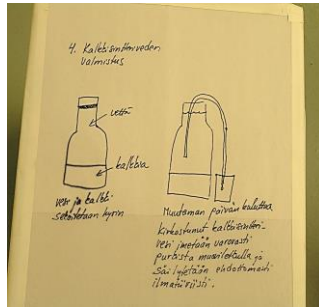 4. Kalkkisintteriveden
valmistus
vettä
kalkkia
vesi ja kalkki
sekoitetaan hyvin
Muutaman päivän kuluttua
kirkastunut
vesi imetään varovasti
purkista muoviletkulla ja
säilytetään ehdottomasti
ilmatiiviisti.